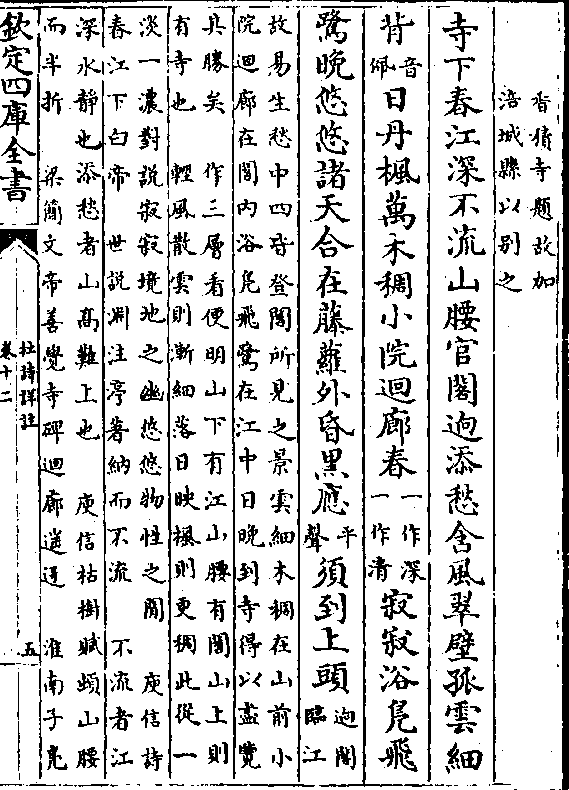 香積寺題故加
涪城縣以别之
寺下春江深不流山腰官閣迥添愁含風翠壁孤雲細
背音佩日丹楓萬木稠小院迴廊春一作深一作清寂寂浴鳧飛
鷺晚悠悠諸天合在藤蘿外昏黒應平聲須到上頭迥閣臨江
故易生愁中四皆登閣所見之景雲細木稠在山前小
院迴廊在閣内浴鳧飛鷺在江中日晚到寺得以盡覽
其勝矣 作三層看便明山下有江山腰有閣山上則
有寺也 輕風散雲則漸細落日映楓則更稠此從一
淡一濃對説寂寂境地之幽悠悠物性之閒 庾信詩
春江下白帝 世説淵注渟著納而不流 不流者江
深水靜也添愁者山髙難上也 庾信枯樹賦頓山腰
而半折 梁簡文帝善覺寺碑迴廊逶迤 淮南子鳧
欽定四庫全書
杜詩詳註
卷十二
五